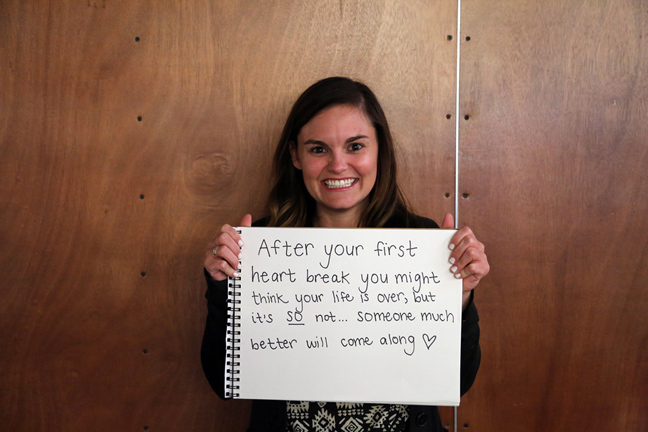 After your first
heart break you might
think your life is over, but
it's so not... someone much
better will come along ♡